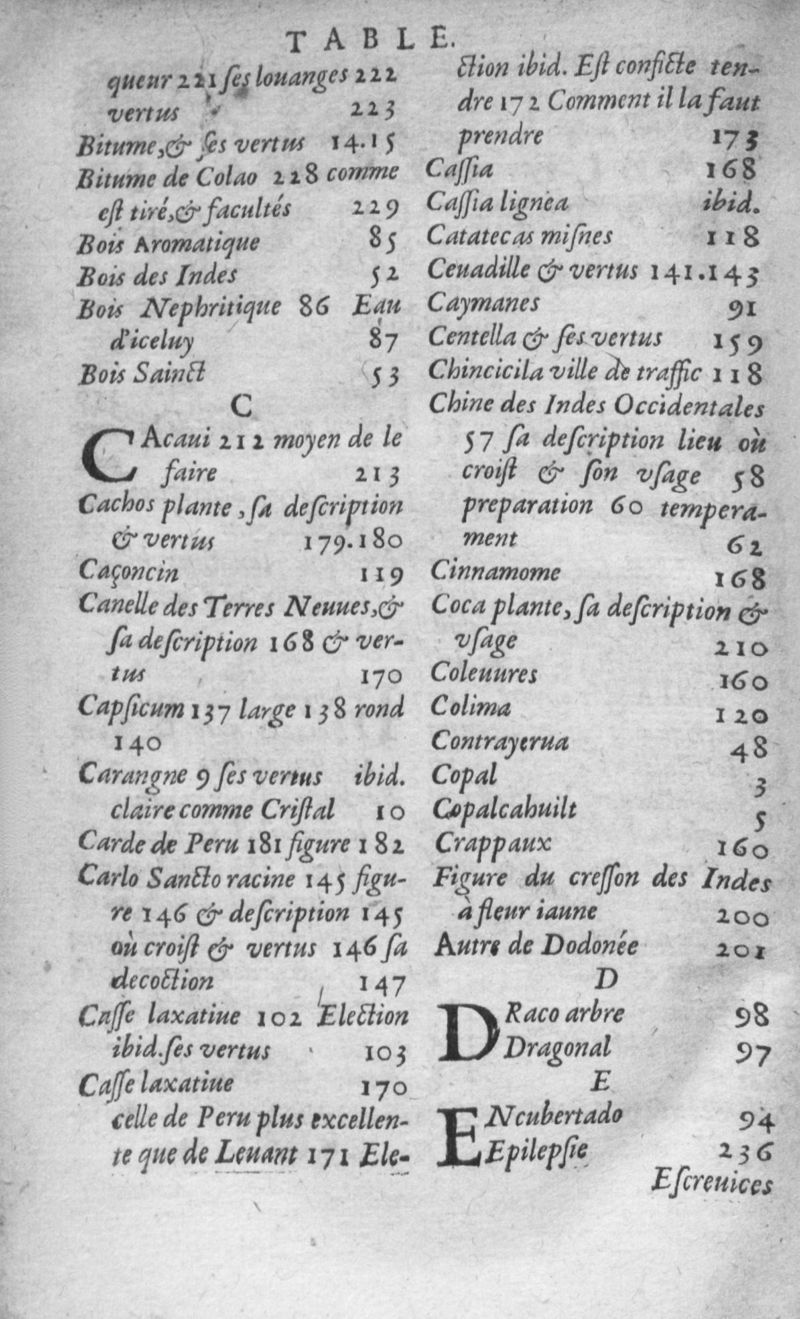 TABLE.
queur 221 ſes louanges 222
vertus 223
Bitume,& ſes vertus 14.15
Bitume de Colao 228 comme
eſt tiré,& facultés 229
Bois Aromatique 85
Bois des Indes 52
Bois Nephritique 86 Eau
d'iceluy 87
Bois Sainct 53
C
CAcaui 212 moyen de le
faire 213
Cachos plante, ſa deſcription
& vertus 179.180
Caçoncin 119
Canelle des Terres Neuues,&
ſa deſcription 168 & ver-
tus 170
Capſicum 137 large 138 rond
140
Carangne 9 ſes vertus ibid.
claire comme Criſtal 10
Carde de Peru 181 figure 182
Carlo Sancto racine 145 figu-
re 146 & deſcription 145
où croiſt & vertus 146 ſa
decoction 147
Caſſe laxatiue 102 Election
ibid. ſes vertus 103
Caſſe laxatiue 170
celle de Peru plus excellen-
te que de Leuant 171 Ele-
ction ibid. Eſt conficte ten-
dre 172 Comment il la faut
prendre 173
Caſſia 168
Caſſia lignea ibid.
Catatecas miſnes 118
Ceuadille & vertus 141.143
Caymanes 91
Centella & ſes vertus 159
Chincicila ville de traffic 118
Chine des Indes Occidentales
57 ſa deſcription lieu où
croiſt & ſon vſage 58
preparation 60 tempera-
ment 62
Cinnamome 168
Coca plante, ſa deſcription &
vſage 210
Coleuures 160
Colima 120
Contrayerua 48
Copal 3
Copalcahuilt 5
Crappaux 160
Figure du creſſon des Indes
à fleur iaune 200
Autre de Dodonée 201
D
DRaco arbre 98
Dragonal 97
E
ENcubertado 94
Epilepſie 236
Eſcreuices